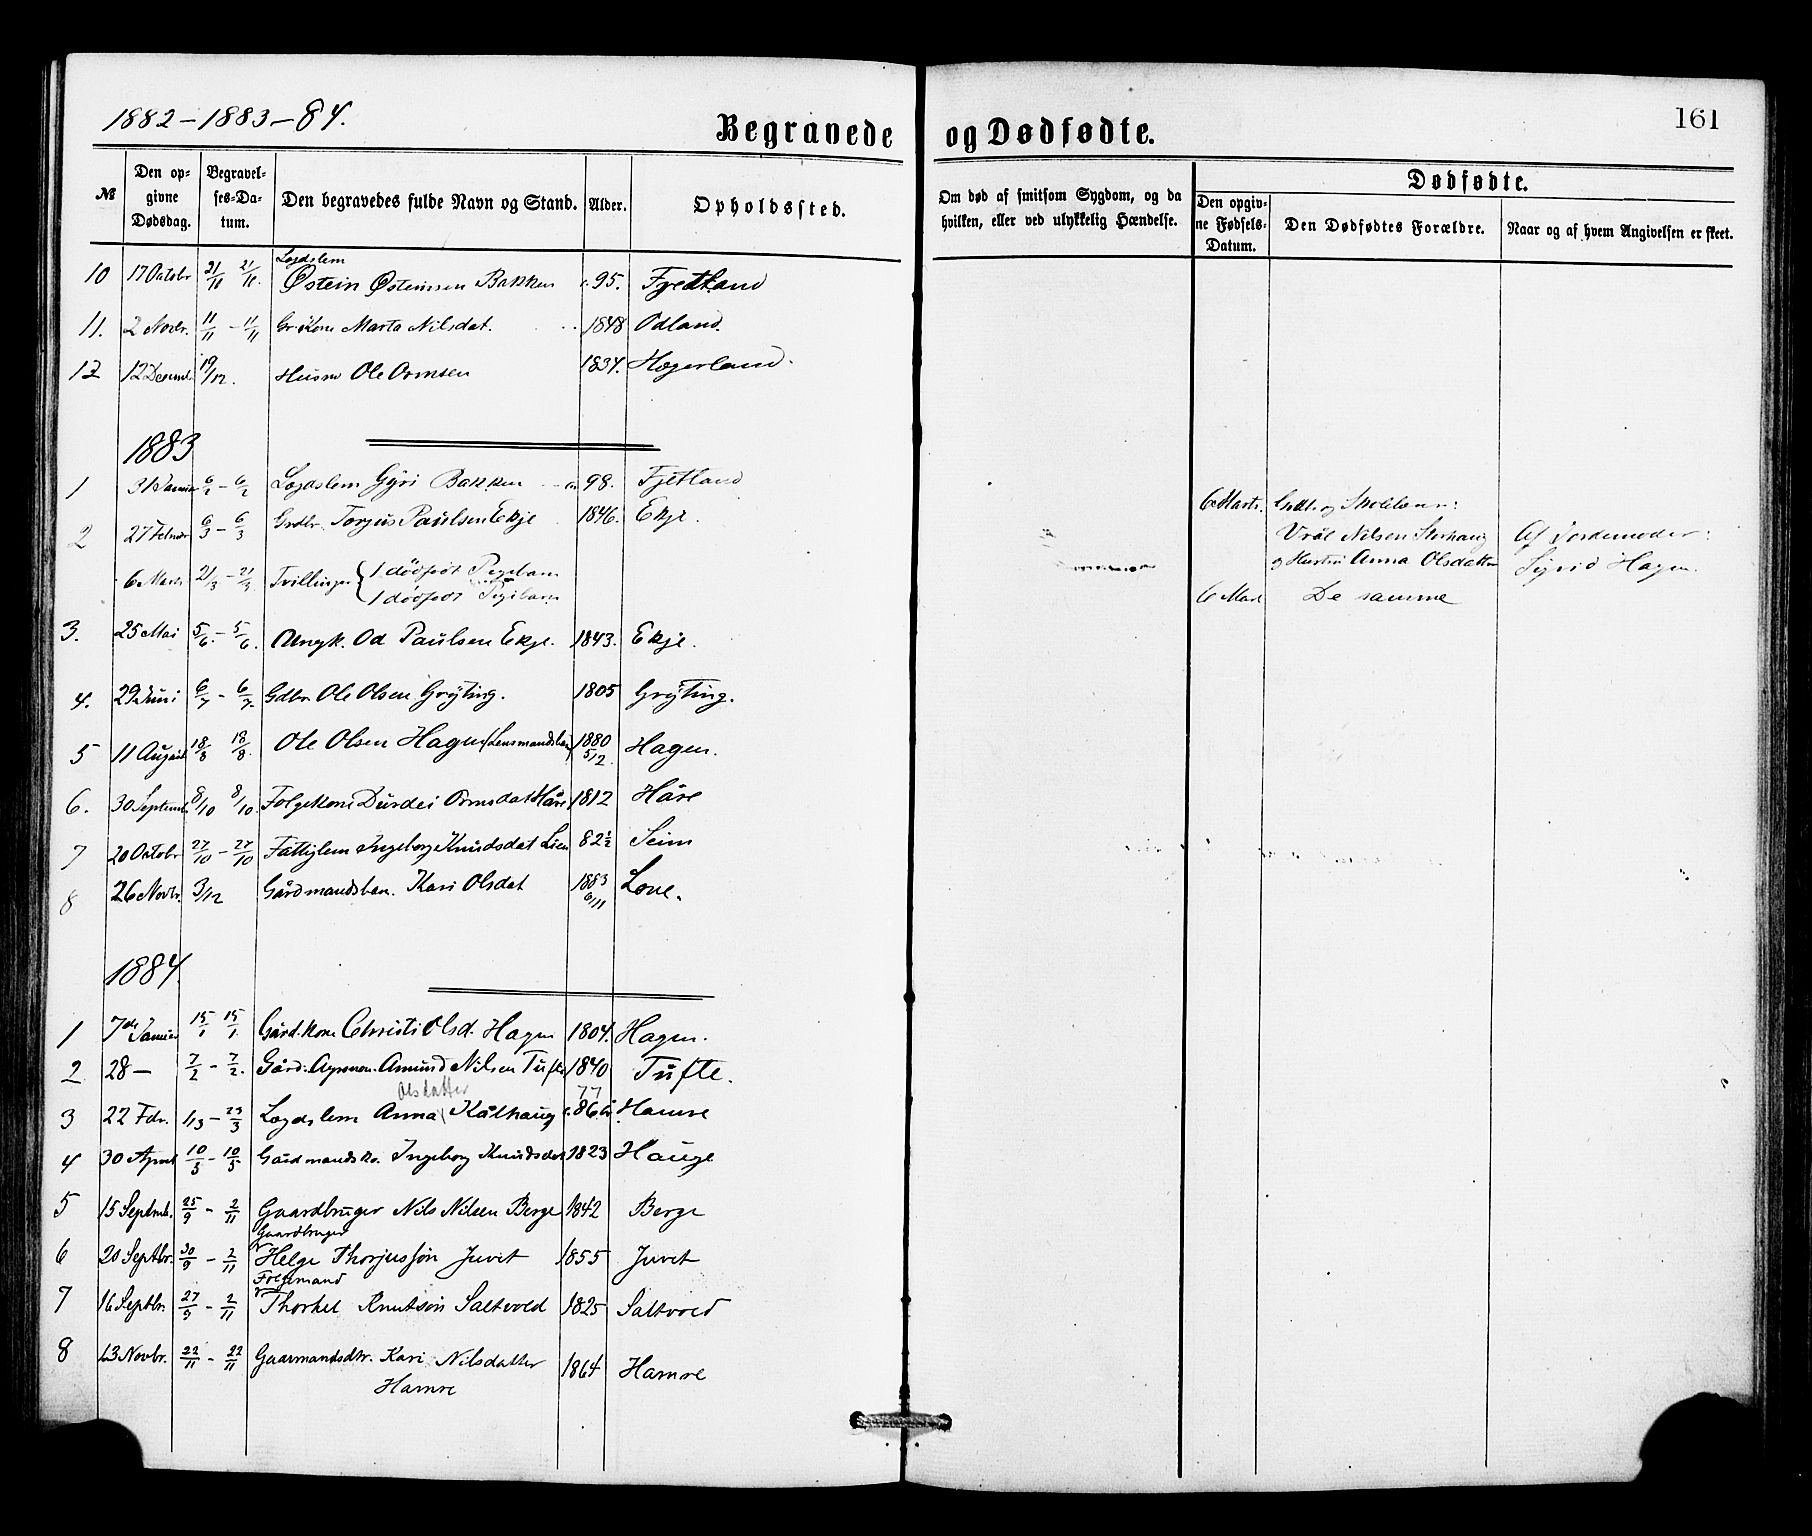 1882-1883-84.
Begravede og Dødfødte.
161
№
Den opgivne Dødsdag.
Begravelses-Datum.
Den begravedes fulde Navn og Stand.
Alder.
Opholdssted.
Om død af smitsom Sygdom, og da hvilken, eller ved ulykkelig Hændelse.
Dødfødte.
Den opgivne Fødsels-Datum.
Den Dødfødtes Forældre.
Naar og af hvem Angivelsen er skeet.
10 17 Octobr 21/11 21/11. Lægdslem Østein Østeinsen Bakken c. 95. Fjetland
11. 2 Novbr. 11/11 - 11/11 Marta Nilsdat. 1848 Odland.
12 12 19/12. Husm Ole Ormsen 1834. Hægerland.
1883
1 31 Januar 6/2 - 6/2 Lægdslem Gyri Bakken 98. Fjetland
2 27 6/3 - 6/3 Grdbr. Torjus Paulsen Ekje 1846. Ekje.
6 Marts 21/3 - 21/3 Tvillinger { 1 dødfødt Pigebarn
1 dødfødt Pigebarn
6 Marts. og
Nilsen
og Hustru Anna Olsdatter
Af Jordemoder:
Sigrid Hagen.
6 Mart De samme
3. 25 Mai 5/6. - 5/6. Ungk. Od Paulsen Ekje. 1843. Ekje.
4. 29 Juni 6/7 - 6/7. Gdbr. Ole Olsen Grøjting. 1805 Grøjting.
5 11 August 18/8 18/8. Ole Olsen Hagen (Lensmandsbarn) 1880 5/12 Hagen.
6. 30 Septembr 8/10 8/10. Folgekone Durdei Ormsdat Håre 1812 Håre
7 20 Octobr 27/10 - 27/10 Fattiglem Ingeborg Knudsdat Lien 82½ Seim
8 26 Novbr. 3/12 Gårdmandsbarn. Kari Olsdat 1883 6/11 Lone.
1884.
1 7de Januar 15/1 15/1. Gård.kone Christi Olsd. Hagen 1804. Hagen.
2 28 - 7/2 - 7/2. Gård. Amund Nilsen Tufte 1840 Tufte.
3 22 1/3 - 23/3 Lægdslem Anna Olsdatter Kålhaug 77 c. 86 år. Hamre
4 30 April 10/5 - 10/5 Gårdmandsko. Ingeborg Knudsdat 1823 Hauge
5 15 Septmb. 25/9 - 2/11 Gaardbruger Nils Nilsen Berge 1842 Berge
6 20 Septbr. 30/9 - 2/11 Gaardbruger Helge Thorjussøn Juvet 1855 Juvet
7 16 Septbr. 27/9 - 2/11 Folgemand Thorkel Knutsøn Saltvold 1825 Saltvold
8 13 Novbr. 22/11 - 22/11 Gaarmandsdtr. Kari Nilsdatter 1864 Hamre
Hamre